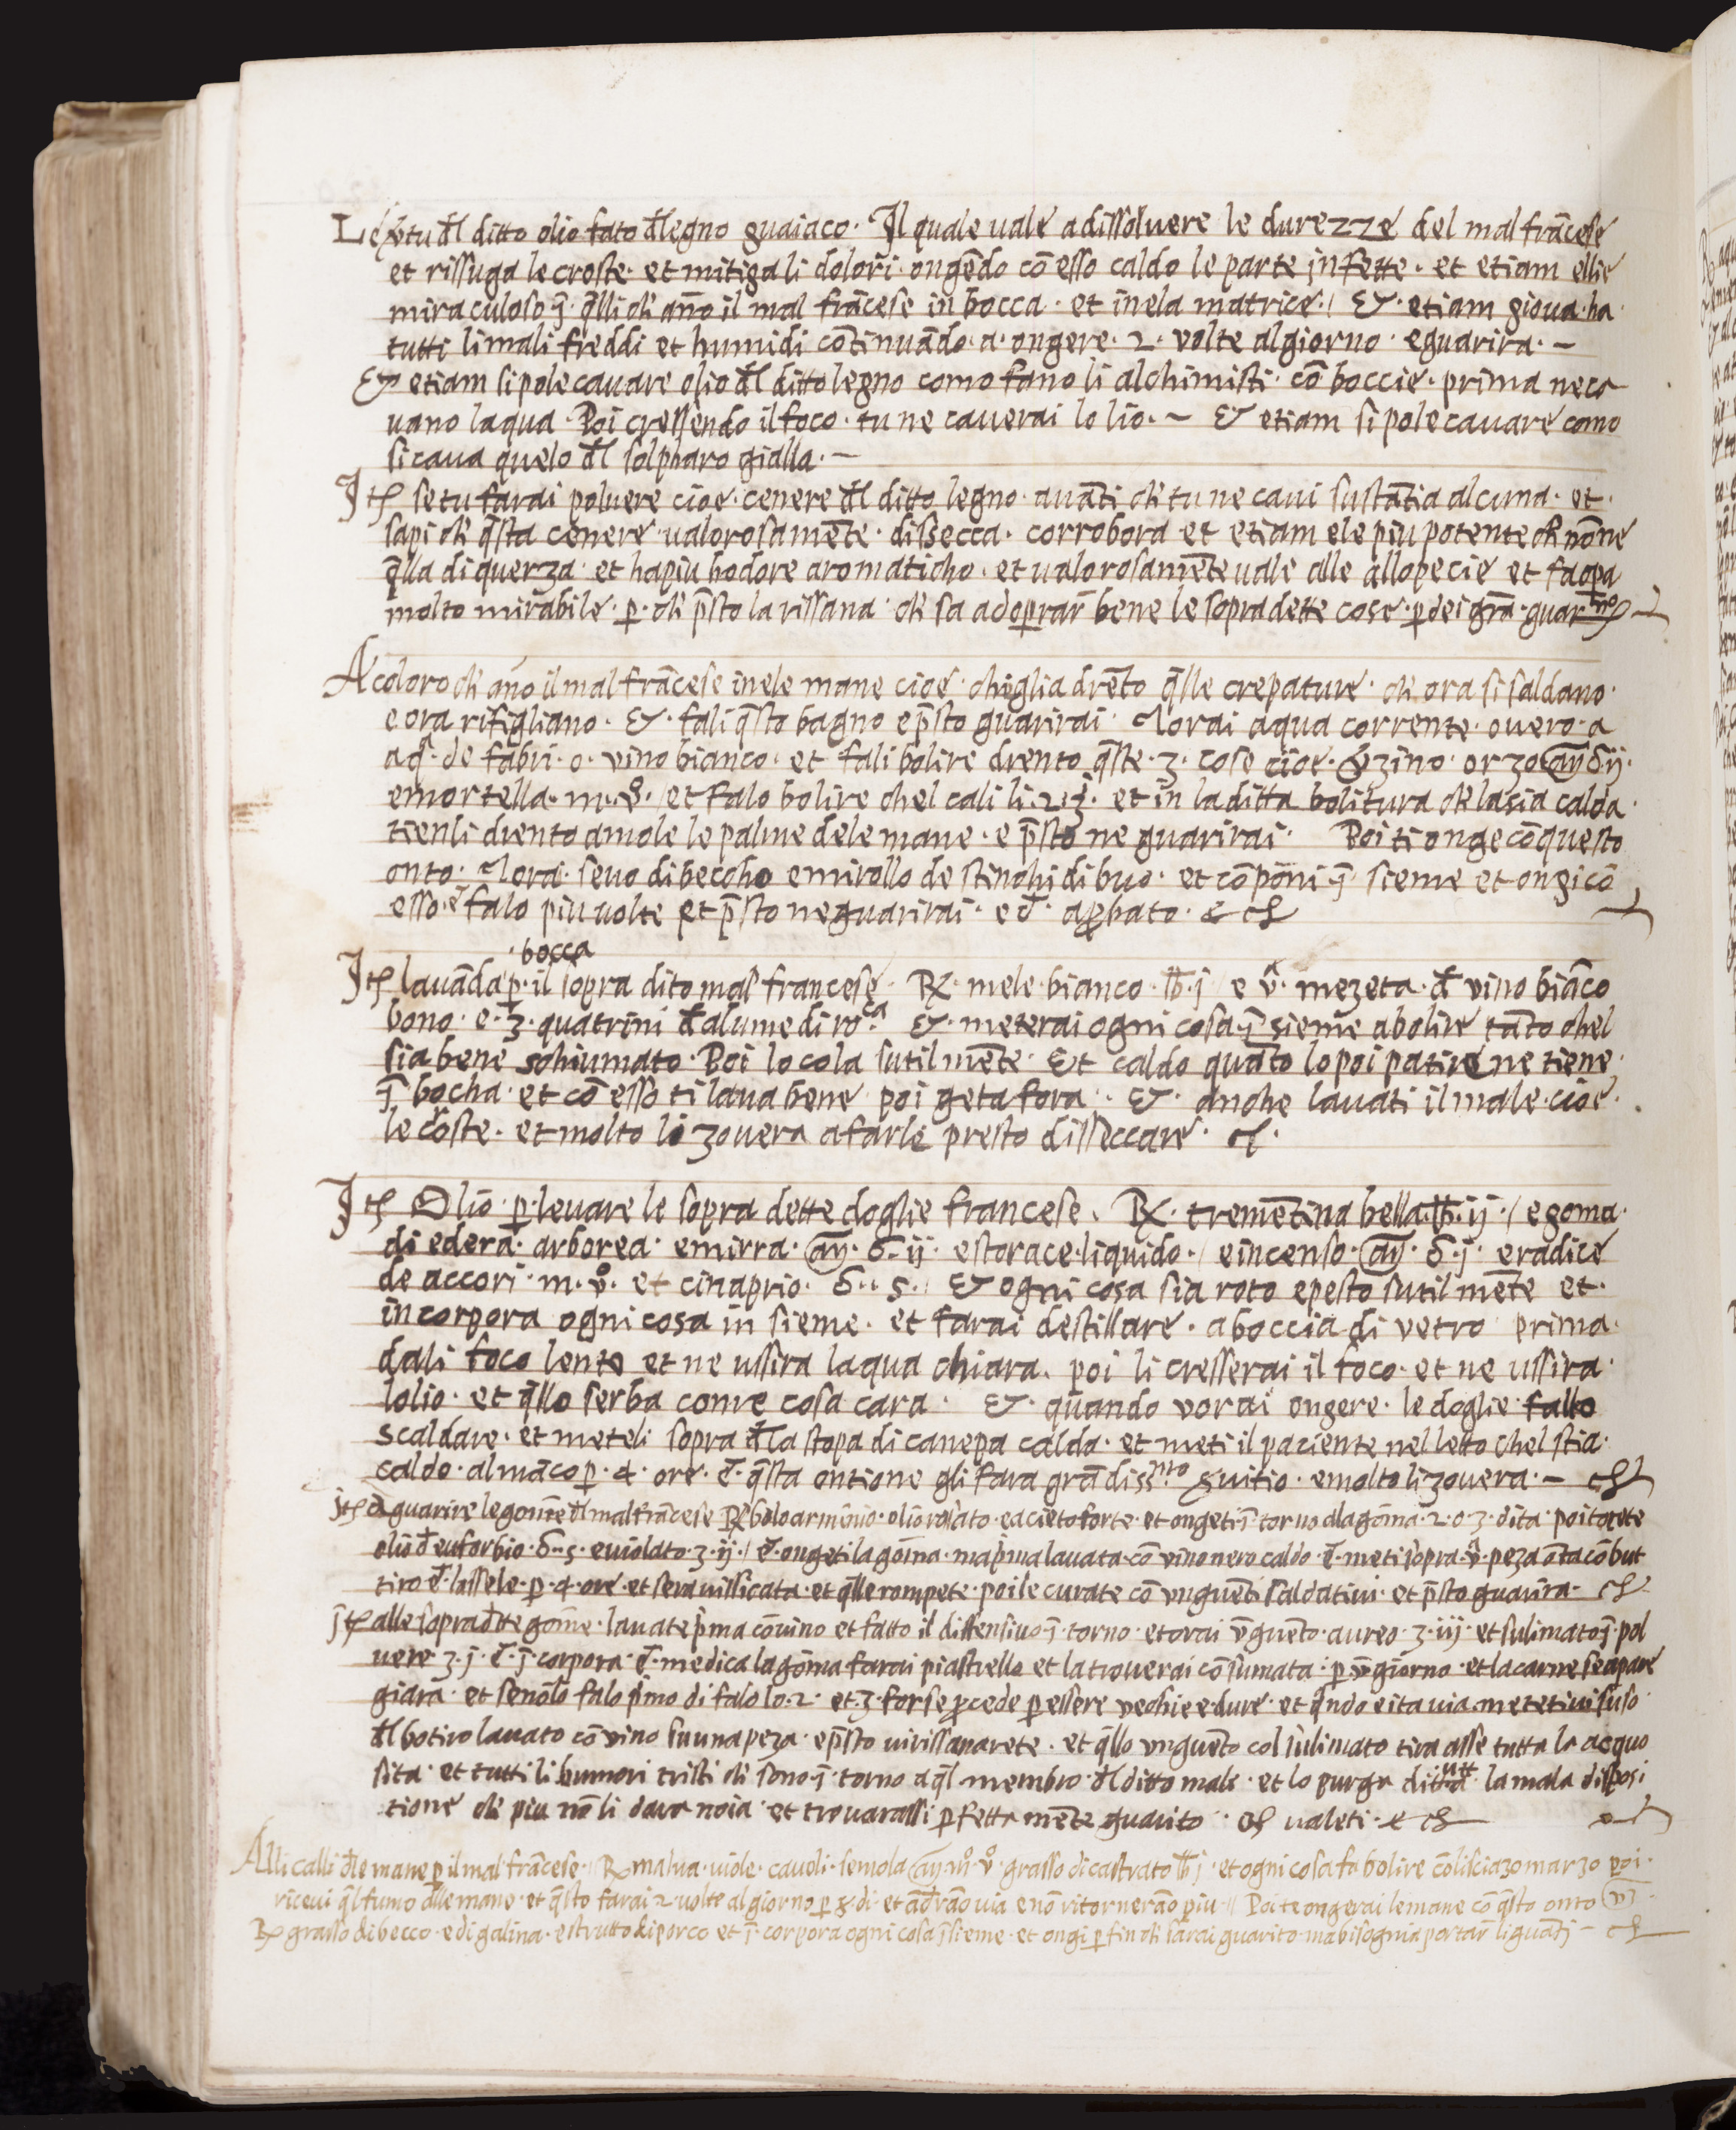 Le v̄tu d̄l ditto olio fato d̄ legno guaiaco· Il quale uale a dissoluere le durezze del mal frācese
et rissuga le croste· et mitiga li dolori· ongēdo cō esso caldo le parte infette· et etiam ellie
miraculoso ī q̄lli ch' āno il mal frācese in bocca· et in ela matrice·/ &· etiam gioua ha·
tutti li mali freddi et humidi cōtinuādo· a· ongere· 2· volte al giorno· e guarira· ~
& etiam si pole cauare olio d̄l ditto legno como fano li alchimisti· cō boccie· prima ne ca
uano laqua· Poi cressendo il foco· tu ne cauerai lo lio· ~ & etiam si pole cauare como
si caua quelo d̄l solpharo gialla· ~
Itē se tu farai poluere cioe· cenere d̄l ditto legno· auāti ch' tu ne caui sustātia alcuna· et·
sapi ch' q̄sta cenere· ualorosamēte· dissecca· corrobora et etiam ele piu potente ch' nō ne
q̄lla di querza· et ha piu hodore aromaticho· et ualorosamēte uale alle allopecie et fa opa
molto mirabile· p̄· ch' p̄sto la rissana· ch' sa adoprar̄ bene le sopra dette cose· p dei grā· guar
A coloro ch' āno il mal frācese in ele mane cioe· chiglia drēto q̄lle crepature· ch' ora si saldano·
e ora rifigliano· &· fali q̄sto bagno e p̄sto guarirai· Torai aqua corrente· ouero· a
aq̄· de fabri· o· vino bianco· et fali bolire drento q̄ste· 3· cose cioe· zino· orzo añ ʒ ij·
e mortella· m· v̊·/ et falo bolire chel cali li· 2· 3̊· et in la ditta bolitura ch' la sia calda·
tienli drento a mole le palme dele mane· e p̄sto ne guarirai· Poi ti onge cō questo
onto· Tora· seuo di beccho e mirollo de stinchi di buo· et cōponi ī sieme et ongi cō
esso· e falo piu uolte et p̄sto ne guarirai· e c̄· aprobato· &
bocca
Itē lauāda p̄· il sopra dito mal francese· ℞ mele bianco· lb· j / e v̄· mezeta· d̄ vino biāco
bono· e· 3· quatrini d̄ alume di roᶜᵃ· &· meterai ogni cosa ī sieme a bolire tāto chel
sia bene schiumato· Poi lo cola sutilmēte· Et caldo quāto lo poi patire ne tiene·
ī bocha· et cō esso ti laua bene· poi geta fora· &· anche lauati il male· cioe·
le coste· et molto li zouera a farle presto disseccare·
Itē Olio· p̄· leuare le sopra dette doglie francese· ℞ tremētina bella lb· ij·/ e goma·
di edera· arborea· e mirra· añ· ʒ· ij· e storace· liquido·/ e incenso· añ· ʒ· j· e radice
de accori· m· v̊· et cinaprio· ʒ·· 5·/ & ogni cosa sia roto e pesto sutil mēte et·
incorpora ogni cosa in sieme· et farai destillare· a boccia di vetro prima·
dali foco lento et ne ussira laqua chiara· poi li cresserai il foco· et ne ussira·
lolio· et q̄llo serba come cosa cara· &· quando vorai ongere· le doglie fallo
scaldare· et meteli sopra d̄la stopa di canepa calda· et meti il paciente nel letto chel stia·
caldo· al māco p̄· 4· ore· c̄· q̄sta ontione gli fara grādissᵐᵒ· seruitio· e molto li zouera· ~
itē a guarire le gome d̄l mal frācese ℞ bolo armēnio· olio rosato· e acieto forte· et ongeti ī torno alla goma· 2· o 3· dita· poi torete
olio d̄ euforbio· ʒ·· 5· e uiolato· 3· ij·/ c̄· ongeti la goma· ma p̄ma lauata· cō vino nero caldo· c̄· meti sopra· v̄· peza ōta cō but
tiro c̄· lassele· p̄· 4· ore· et sera uissicata· et q̄lle rompete· poi le curate cō vnguēti saldatiui· et p̄sto guarira·
itē alle sopra d̄te gome· lauate p̄ma cō uino et fatto il diffensiuo ī· torno· et torai v̄guēto· aureo· 3· iij· et sulimato ī pol
uere· 3· j· c̄· ī corpora· c̄· medica la goma farai piastrello et la trouerai cō sumata· p̄ v̄ giorno· et la carne se apare
giara· et se nō lo falo p̄mo di falo lo· 2· et· 3· forse p̄cede p̄ essere vechie e dure· et q̄ndo e ita uia· metetiui suso
d̄l botiro lauato cō vino su una peza· e p̄sto ui rissanarete· et q̄llo vnguēto col sulimato tira asse tutta la acquo
sita· et tutti li humori tristi ch' sono ī· torno a q̄l membro· d̄l ditto male· et lo purga di tutta la mala disposi
tione ch' piu nō li dara noia· et trouarassi p̄fetta mēte guarito· ualeti·
Alli calli d̄le mane p̄ il mal frācese· ℞ malua· uiole· cauoli· semola añ m̊· v̊· grasso di castrato lb j· et ogni cosa fa bolire cō lisciazo marzo poi·
riceui q̄l fumo alle mane· et q̄sto farai 2 uolte al giorno p̄ 8· di· et ādrāo uia e nō ritornerāo piu· // Poi te ongerai le mane cō q̄sto onto
℞ grasso di becco· e di galina· e strutto di porco et ī· corpora ogni cosa ī sieme· et ongi p̄ fin ch' sarai guarito· ma bisognia portar̄ li guāti ~